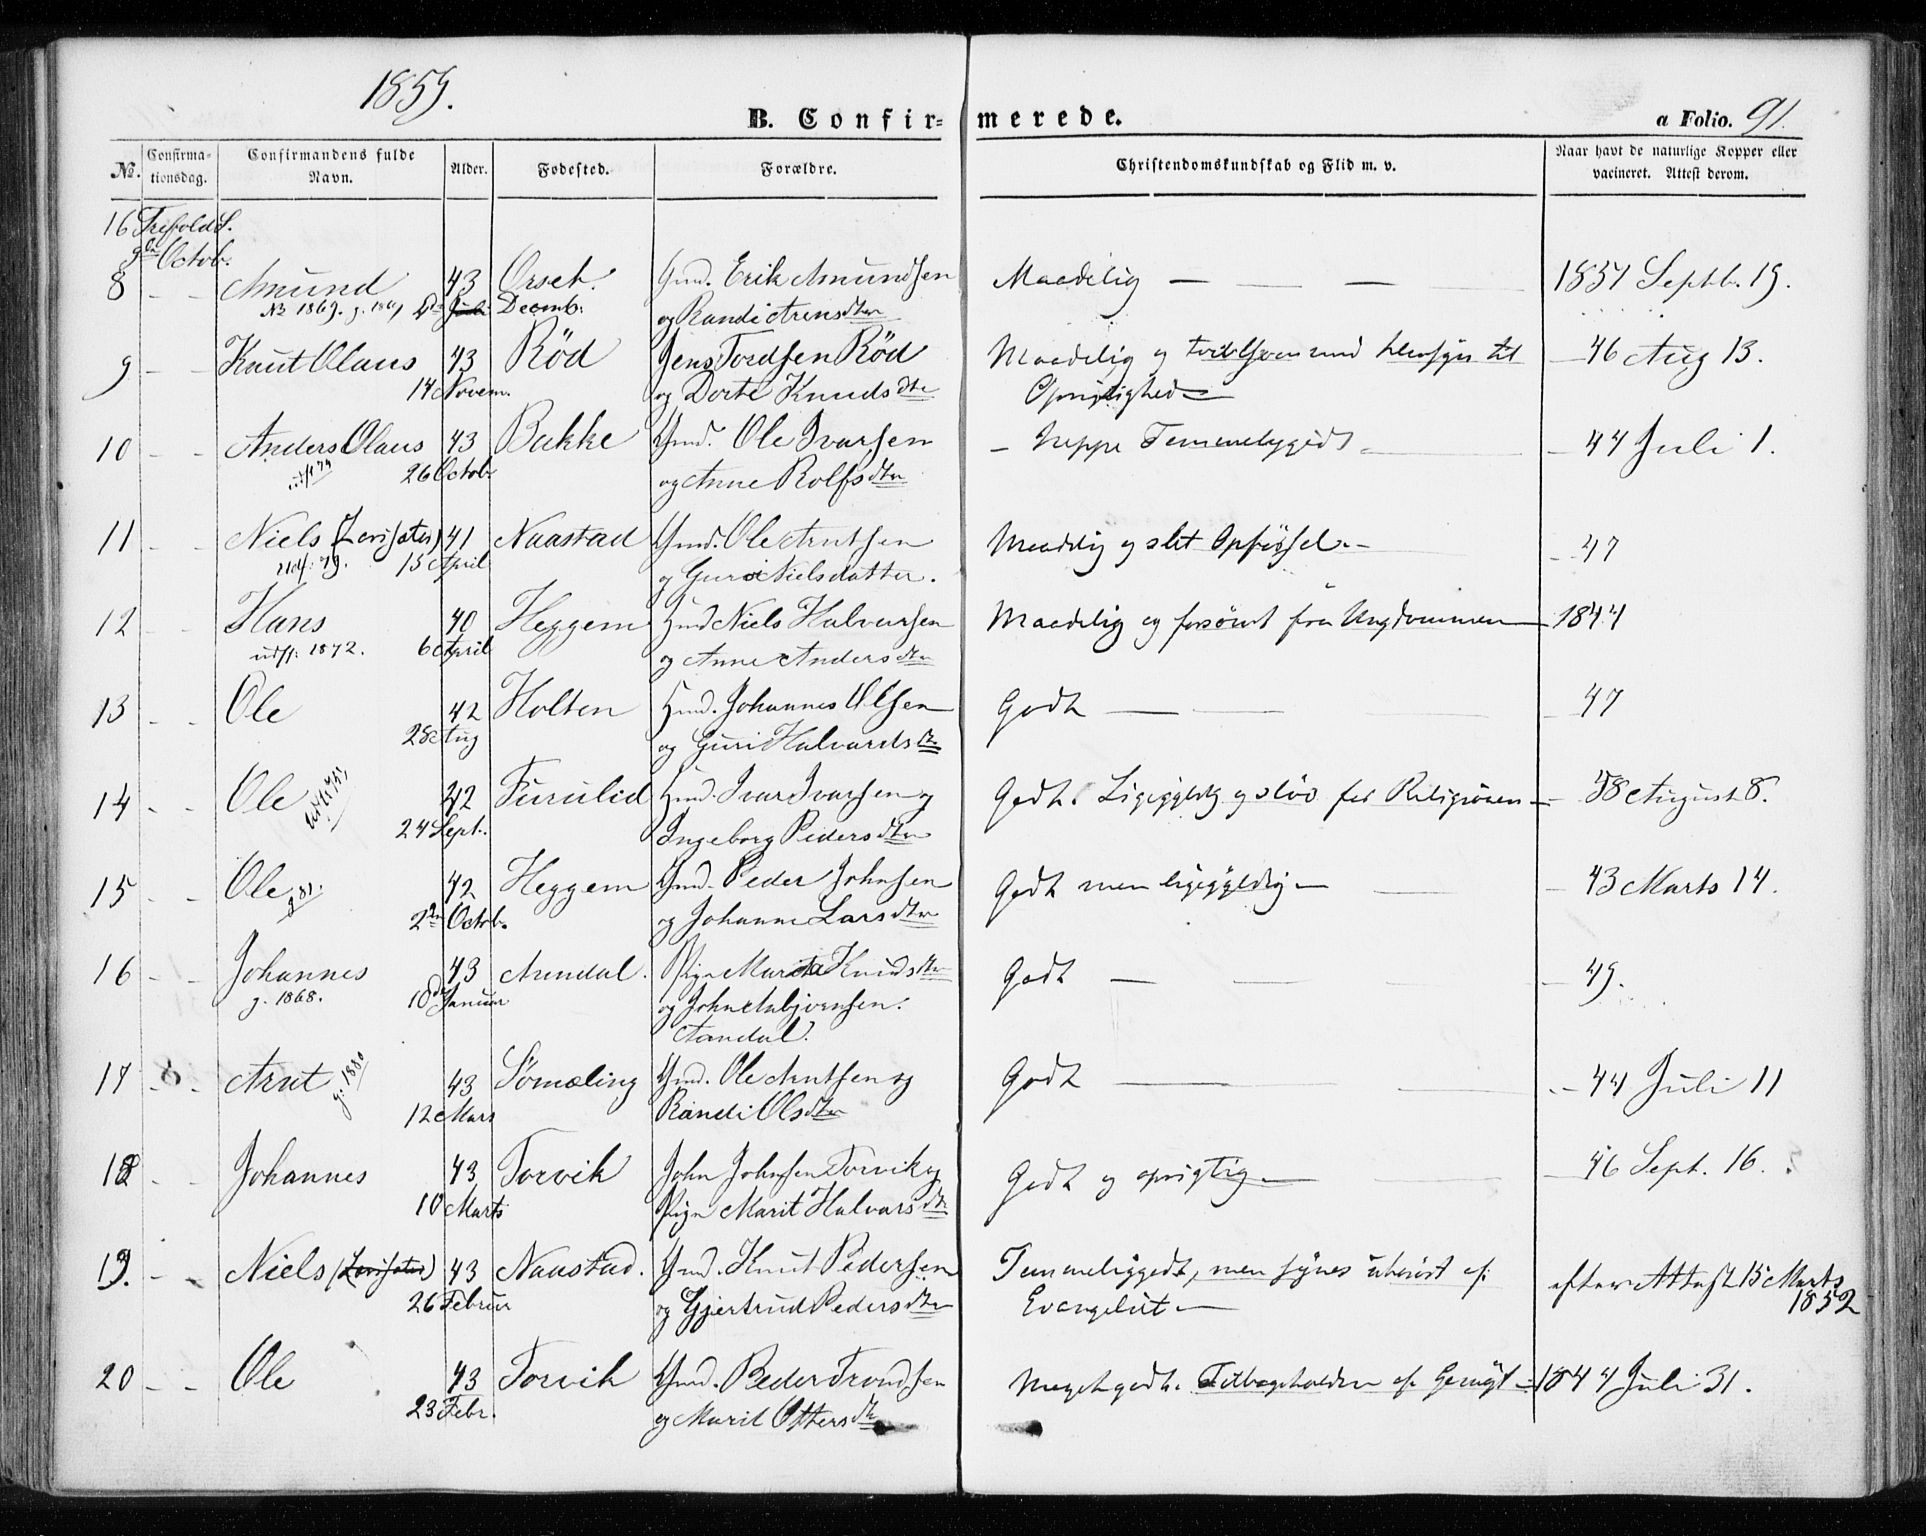 1859.
B. Confirmerede.
a Folio. 91.
No. Confirmationsdag. Confirmandens fulde Navn. Alder. Fødested. Forældre. Christendomskundskab og Flid m. v. Naar havt de naturlige Kopper eller vacineret. Attest derom.
16 Trefold S.
9de Octob.
8 - - Amund 43 Orset. Gmd. Erik Amundsen Maadelig — — — 1851 Septb. 19.
1869. Decemb. og Randi Arensdtr
9 - - Knut Olaus 43 Röd Jens Tordsen Röd Maadelig og med Hensyn til — 46 Aug 13.
14 Novem. og Dorte Knudsdtr Oprigtighed —
10 - - Anders Olaus 43 Bakke Gmd. Ole Ivarsen - Neppe Temmeliggodt — 44 Juli 1.
26 Octob. og Anne Rolfsdtr
11 - - Niels 41 Naastad Gmd. Ole Arntsen Maadelig og slet Opførsel. — 47
Udf: 79. 15 April og Guro Nielsdatter.
12 - - Hans 40 Heggem Hmd Niels Halvorsen Maadelig og forsömt fra Ungdommen — 1844
utfl: 1872. 6 April og Anne Andersdtr
13 - - Ole 42 Holten Hmd. Johannes Olsen Godt — — — 47
28 Aug og Guri Halvardsdtr
14 - - Ole 42 Furulid Hmd. Ivar Ivarsen og Godt. Ligegyldig og slöv for Religionen — 58 August 8.
24 Sept. Ingeborg Pedersdtr
15 - - Ole g 81. 42 Heggem Gmd. Peder Johnsen Godt men ligegyldig — — 43 Marts 14.
2den Octob. og Johanne Larsdtr
16 - - Johannes 43 Arendal. Pige Marit Knudsdtr Godt — — — 49.
g. 1868. 10de Januar og John Asbjørnsen.
Aandal.
17 - - Arnt g. 1880 43 Sömæling Gmd. Ole Arntsen og Godt — — — 44 Juli 11
12 Mars Randi Olsdtr
18 - - Johannes 43 Torvik John Johnsen Torvik og Godt og oprigtig — — 46 Sept. 16.
10 Marts Pige Marit Halvorsdtr
19. - - Niels 43 Naastad. Gmd. Knut Pedersen Temmeliggodt, men synes uberört af efter Attest 15 Marts
26 Februar og Gjertrud Pedersdtr Evangeliet — 1852
20 - - Ole 43 Torvik Gmd. Peder Trondsen Megetgodt. Tilbageholden af Gemyt — 1844 Juli 31.
23 Febr. og Marit Ottersdtr